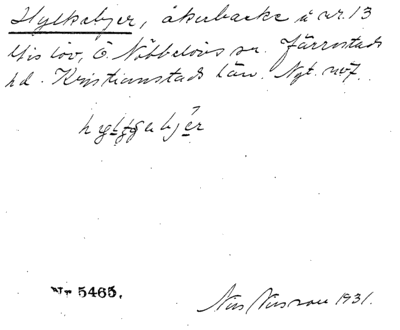 Hylkabjer, åkerbacke å nr. 13
Mislöv, Ö. Nöbbelövs sn. Järrestads
hd. Kristianstads län. Ngt. no7.
Nr 5465.
Nils Nilsson 1931.